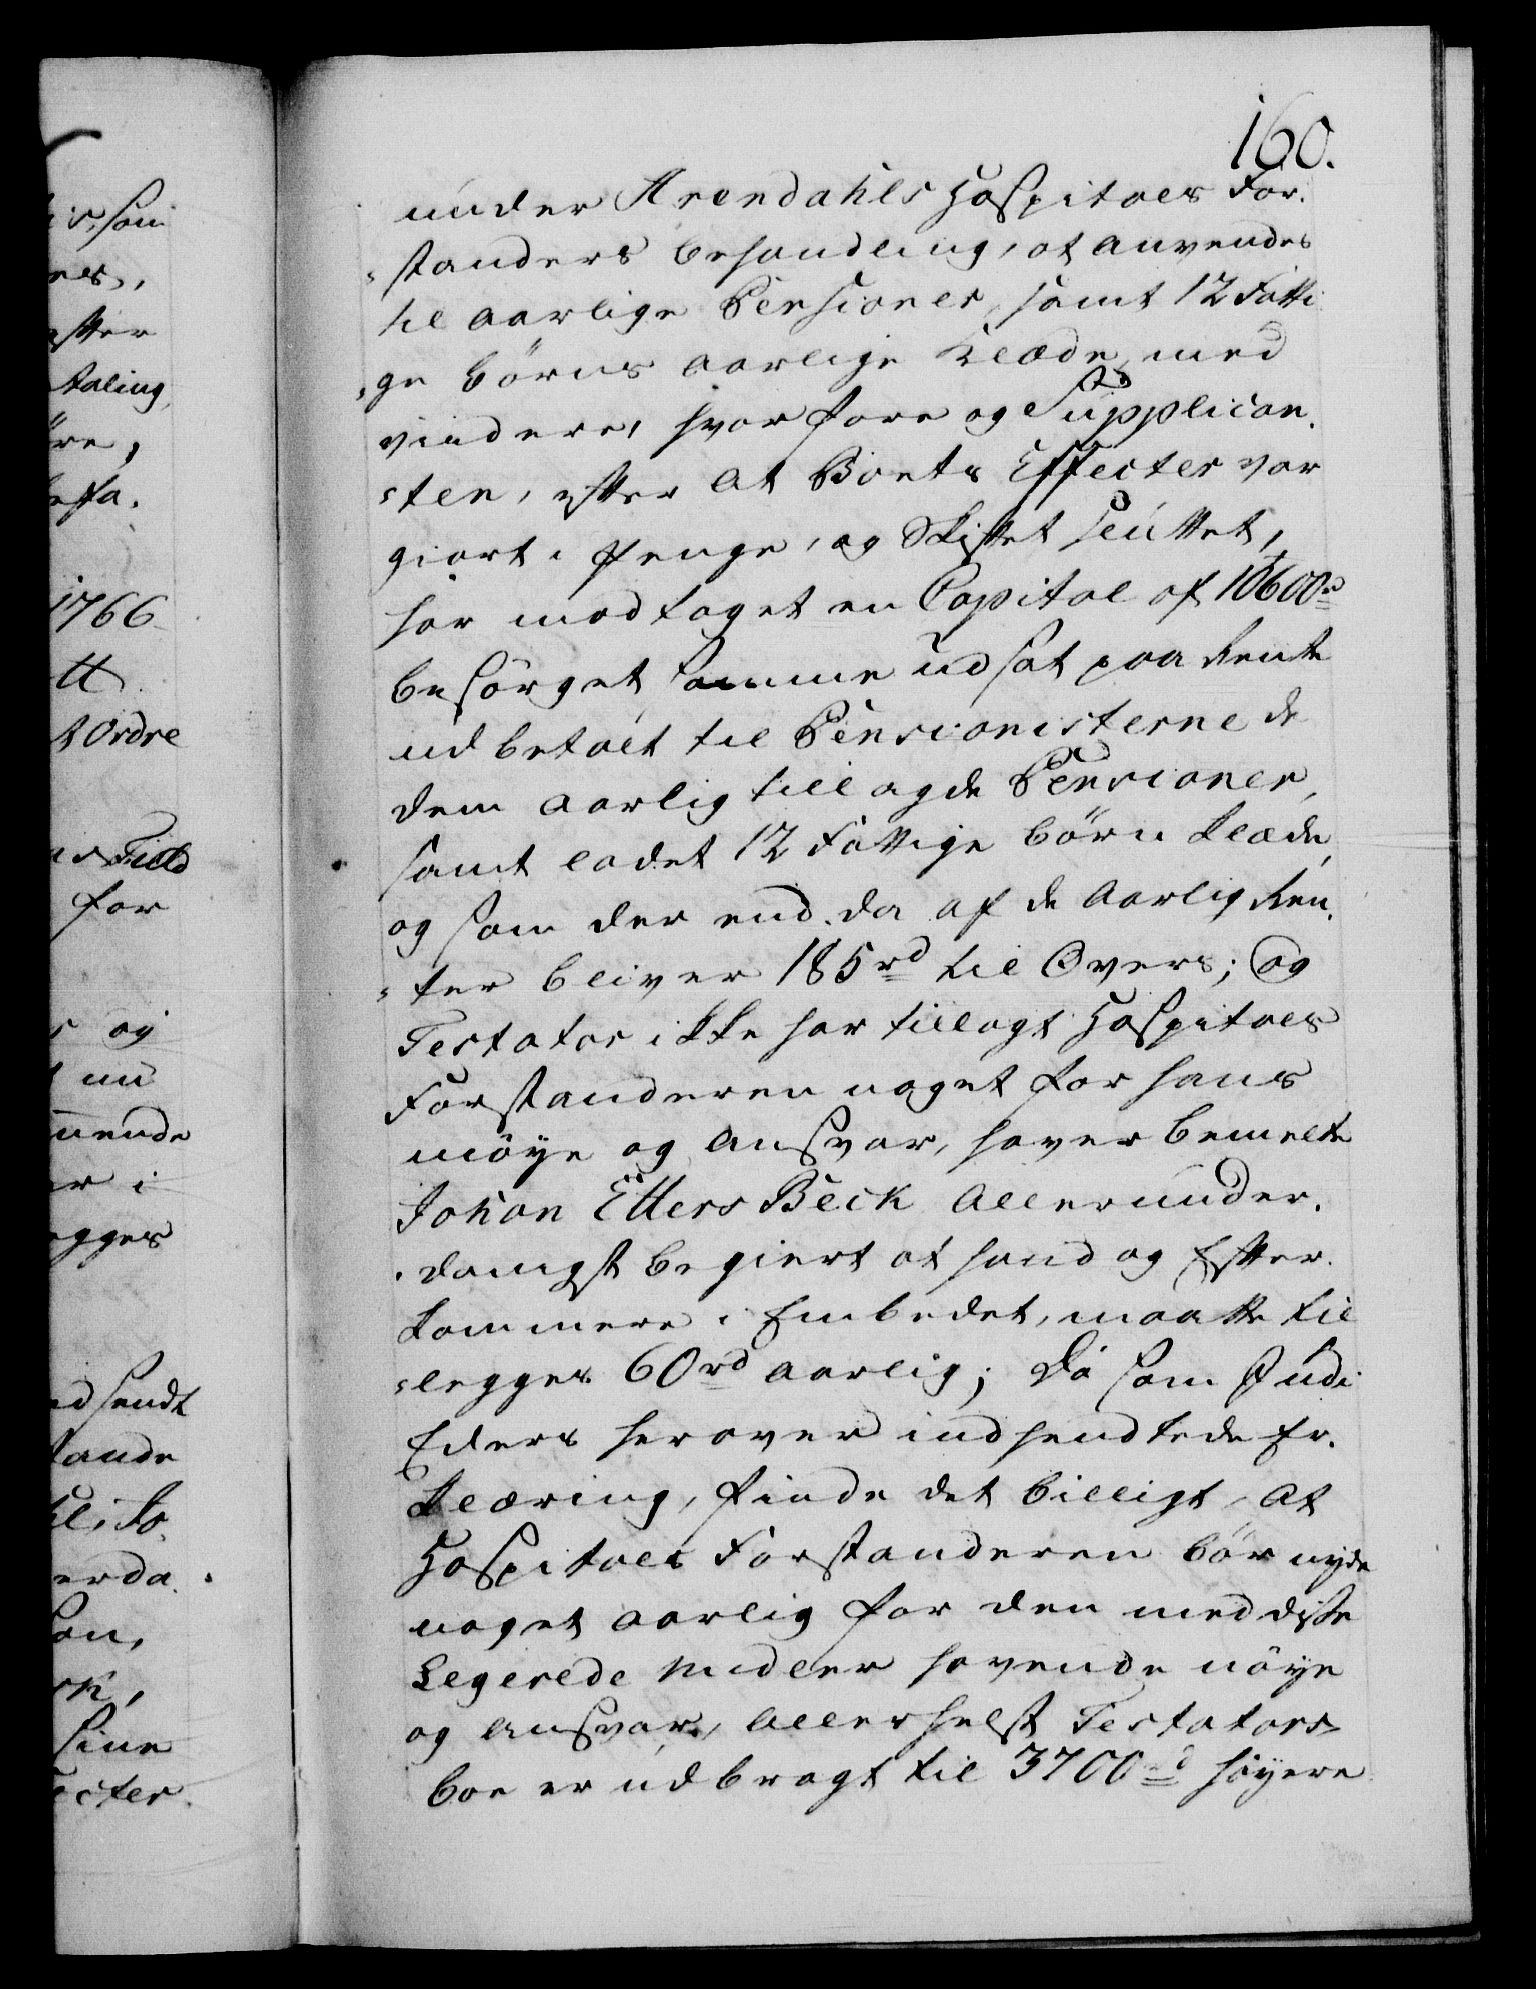 160.
under Arendahls Hospitals For-
standers behandling, at anvendes
til aarlige Pensioner, samt 12 Fatti-
ge börns aarlige Klæde med
vindere, hvorfore og Supplican-
ten, efter at Boets Effecter var
giort i Penge, og Skiftet sluttet,
har modtaget en Capital af 10600rd
besörget samme udsat paa Rente
udbetalt til Pensionisterne de
dem aarlig tillagde Pensioner,
samt ladet 12 Fattige börn Klæde,
og som der end da af de aarlig Ren-
ter bliver 185rd til Overs; og
Testator ikke har tillagt Hospitals
Forstanderen noget for hans
möye og Ansvar, haver bemelte
Johan Ellers Beck Allerunder-
danigst begiert at hand og Efter-
kommere i Embedet, maatte til-
legges 60rd aarlig; Da som I udi
Eders herover indsendtede Er-
klæring, finde det billigt, at
Hospitals Forstanderen bör nyde
noget aarlig for den med disse
Legerede Midler havende möye
og Ansvar, allerhelst Testators
boe er udbragt til 3700rd höyere
is, som
ester
taling
öre,
1766
Ordre
Field
for
og
nu
i
egges
sendt
sine
ecter.